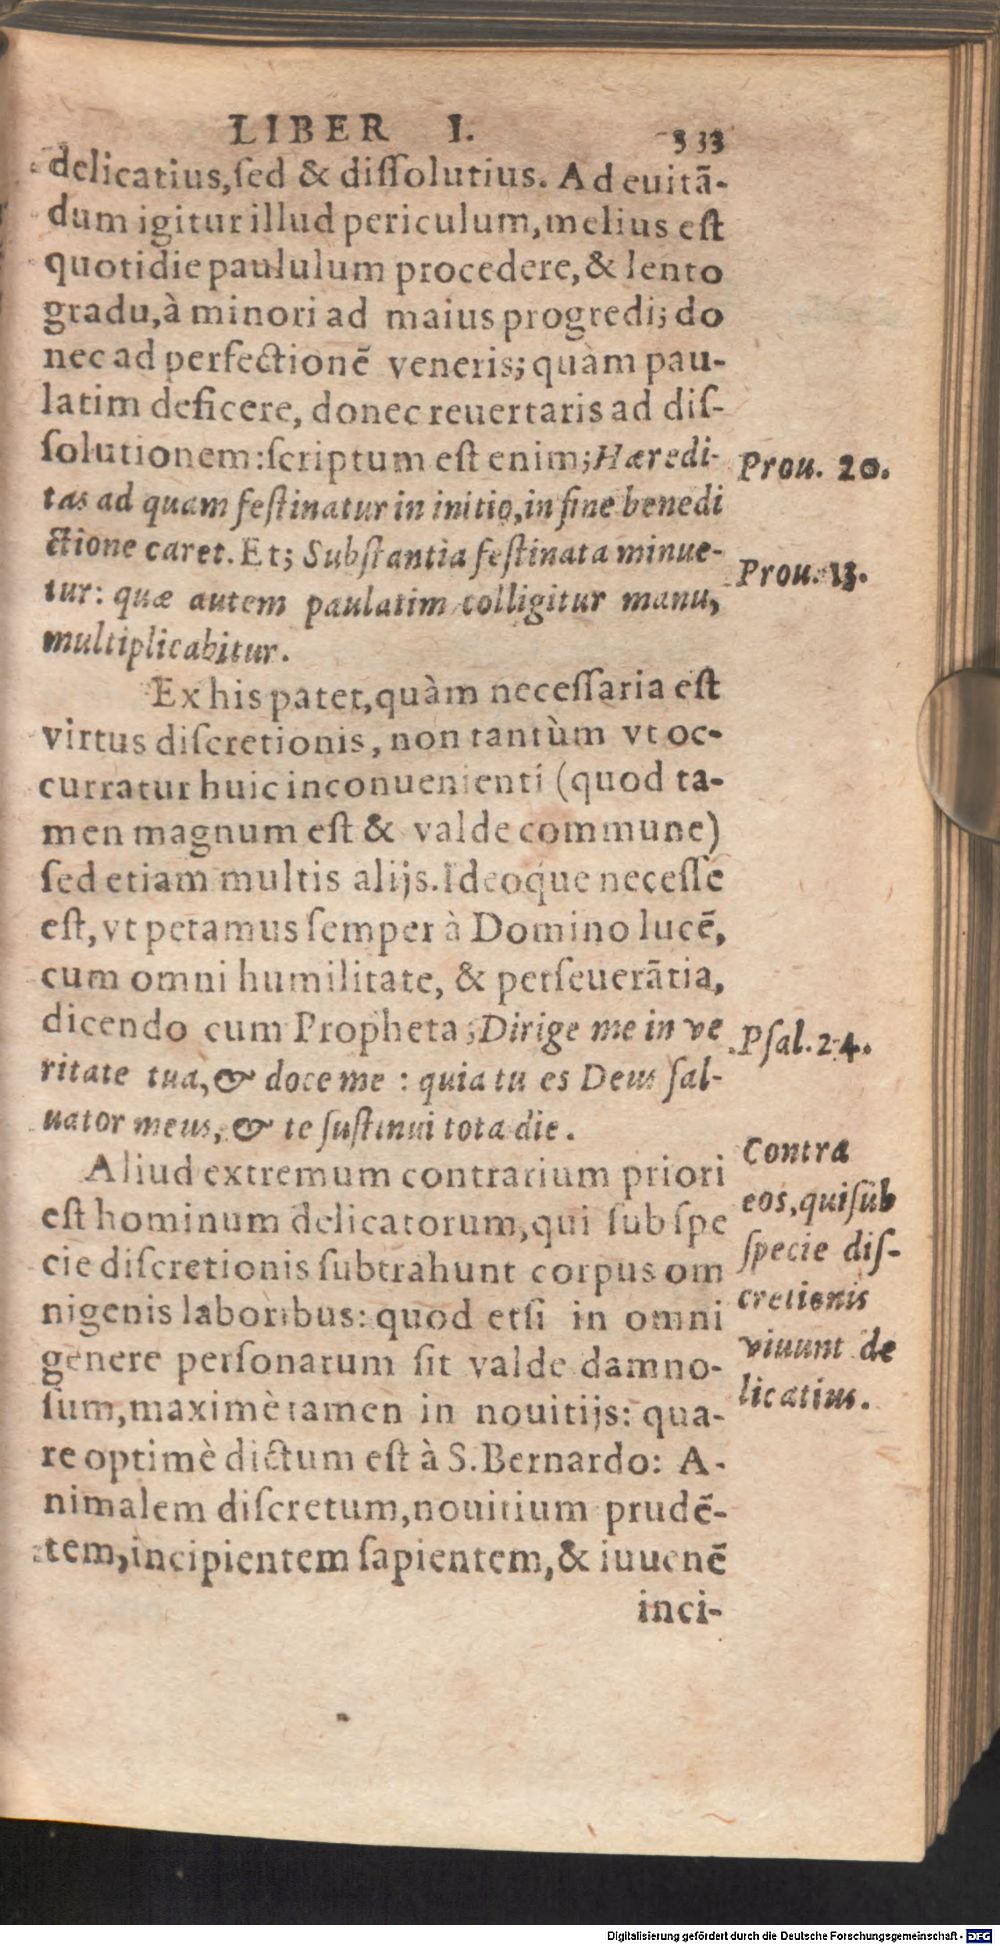 LIBER I. 333
delicatius,ſed & diſſolutius. Ad euitā-
dum igitur illud periculum,melius eſt
quotidie paululum procedere,& lento
gradu,à minori ad maius progredi; do
nec ad perfectionē veneris; quàm pau-
latim deficere, donec reuertaris ad diſ-
ſolutionem:ſcriptum eſt enim;Hæredi-
tas ad quam feſtinatur in initio,in fine benedi
ctione caret. Et; Subſtantia feſtinata minue-
tur: quæ autem paulatim colligitur manu,
multiplicabitur.
Prou. 20.
Prou. 13.
Ex his patet,quàm neceſſaria eſt
virtus diſcretionis, non tantùm vt oc-
curratur huic inconuenienti (quod ta-
men magnum eſt & valde commune)
ſed etiam multis alijs. Ideoque neceſſe
eſt,vt petamus ſemper à Domino lucē,
cum omni humilitate, & perſeuerātia,
dicendo cum Propheta;Dirige me in ve
ritate tua,& doce me : quia tu es Deus ſal-
uator meus, & te ſuſtinui tota die.
Pſal. 24.
Aliud extremum contrarium priori
eſt hominum delicatorum,qui ſub ſpe
cie diſcretionis ſubtrahunt corpus om
nigenis laboribus: quod etſi in omni
genere perſonarum ſit valde damno-
ſum,maximè tamen in nouitijs: qua-
re optimè dictum eſt à S.Bernardo: A-
nimalem diſcretum,nouitium prudē-
tem,incipientem ſapientem,& iuuenē
inci-
Contra
eos,qui ſub
ſpecie diſ-
cretionis
viuunt de
licatius.
Digitalisierung gefördert durch die Deutsche Forschungsgemeinschaft - DFG